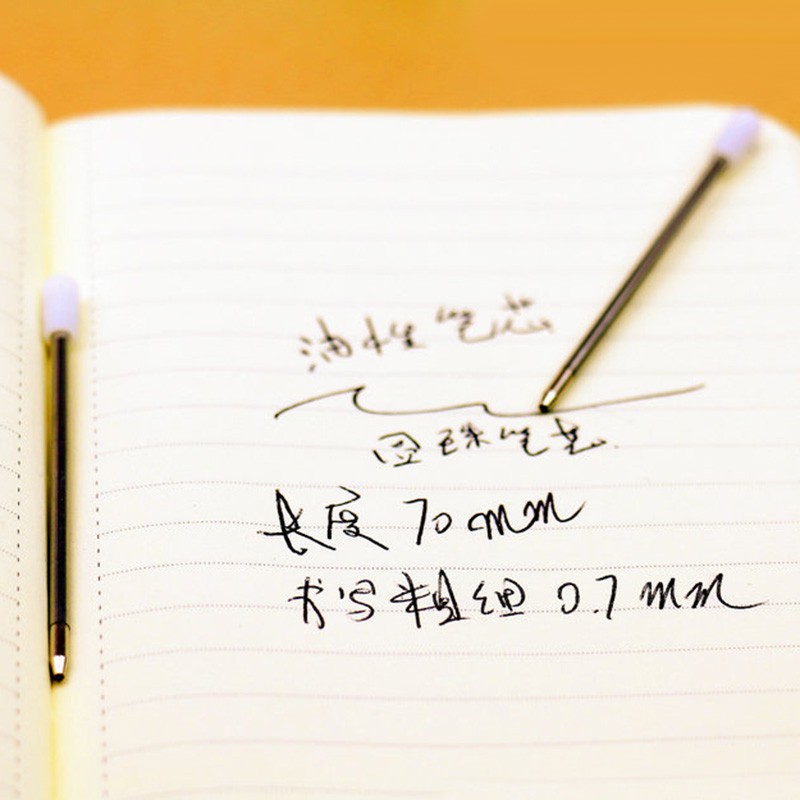 油性笔芯
圆珠笔芯
长度 70mm
书写粗细 0.7mm